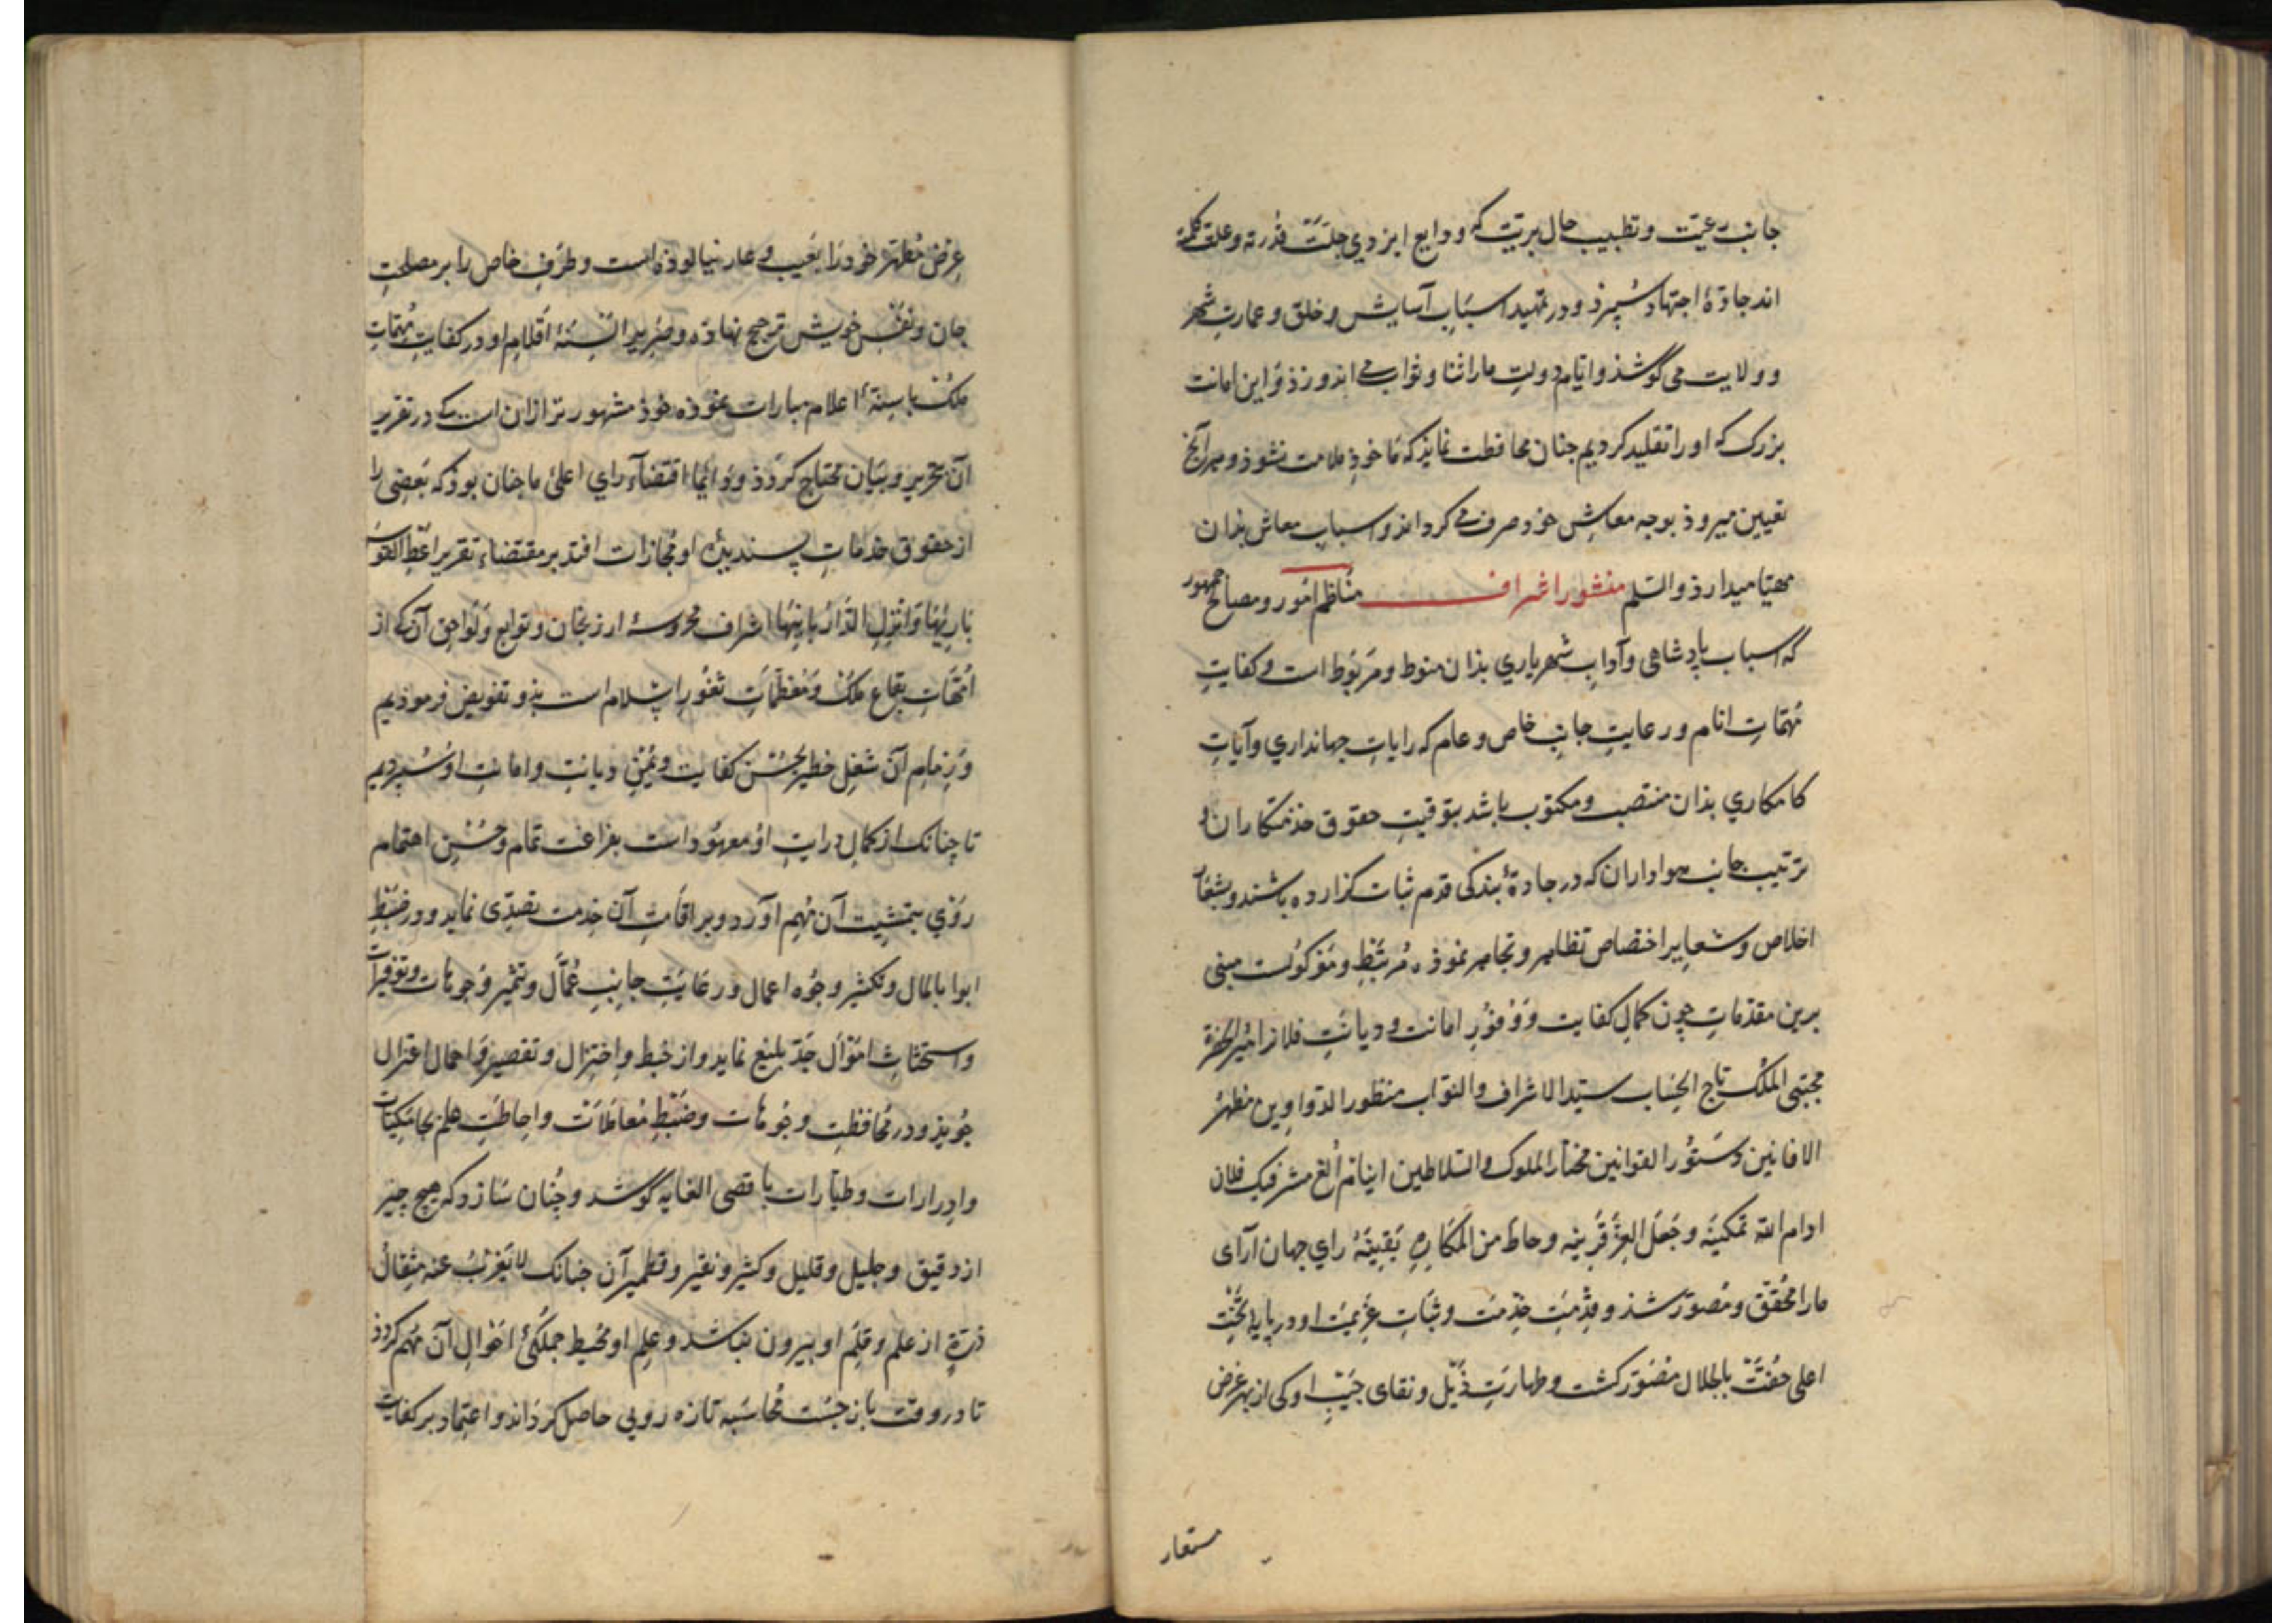 جانب رعیت و تطبیب حال بریت که ودایع ایزدی جلت قدرته و علت کلمته
اند جادۀ اجتهاد سپرذ و در تمهید اسباب آسایش و خلق و عمارت شهر
و ولایت می کوشذ و ایام دولت ما را ثنا و ثواب می اندوزذ و این امانت
بزرک که او را تقلید کردیم جنان محافظت نمایذ که مأخوذ ملامت نشوذ و هر آنج
تعیین میروذ بوجه معاش خود صرف می کرداند و اسباب معاش بذان
مهیا میدارذ والسلم منشور اشراف مناظم امور و مصالح جمهور
که اسباب پادشاهی و آداب شهریاری بذان منوط و مربوط است و کفایت
مهمات انام و رعایت جانب خاص و عام که رایات جهانداری و آیات
کامکاری بذان منتصب و مکتوب باشد بتوقیت حقوق خذمتکاران و
ترتیب جانب هواداران که در جادۀ بندکی قدم ثبات کزارده باشند و بشعار
اخلاص و شعایر اختصاص تظاهر و تجاهر نموذه مرتبط و موکولست مبنی
برین مقدمات چون کمال کفایت و وفور امانت و دیانت فلان امیر الحضرة
مجتبی الملک تاج الجناب سید الاشراف والنواب منظور الدواوین مظهر
الافانین دستور القوانین مختار الملوک والسلاطین اینانج الغ مشرف بک فلان
ادام الله تمکینه و جعل العز قرینه و حاط من المکاره یقینه رای جهان آرای
ما را محقق و مصور شذ و قدمت خدمت و ثبات عزیمت او در پایۀ تخت
اعلی حفت بالجلال مصور کشت و طهارت ذیل و نقای جیب او کی از بهر غرض
مستعار
عرض مطهر خود را بعیب و عار نیالوذه است و طرف خاص را بر مصلحت
جان و نفس خویش ترجیح نهاذه و صریر السنۀ اقلام او در کفایت مهمات
ملک باسنۀ اعلام مبارات نموذه خوذ مشهورتر از آن است که در تقریر
آن بتحریر و بیان محتاج کردذ و دایما اقتضاء رای اعلی ما جنان بوذ که بعضی را
از حقوق خدمات پسندیدۀ او مجازات افتد بر مقتضاء تقریر اعط القوس
باریها و انزل الدار بانیها اشراف محروسۀ ارزنجان و توابع و لواحق آن که از
امهات بقاع ملک و معظمات ثغور اسلام است بذو تفویض فرموذیم
و زمام آن شغل خطیر بحسن کفایت و یمن دیانت و امانت او سپردیم
تا چنانک از کمال درایت او معهود است بفراغت تمام و حسن اهتمام
روی بتمشیت آن مهم آورد و بر اقامت آن خدمت تصدی نماید و در ضبط
ابواب المال و تکثیر وجوه اعمال و رعایت جانب عمال و تثمیر وجوهات و توفیرات
و استحثاث اموال جد بلیغ نماید و از خبط و اختزال و تقصیر و اهمال اعتزال
جویذ و در محافظت وجوهات و ضبط معاملات و احاطت علم بجامکیات
و ادرارات و طیارات باقصی الغایه کوشد و چنان سازد که هیچ چیز
از دقیق و جلیل و قلیل و کثیر و نقیر و قطمیر آن جنانک لا یعزب عنه مثقال
ذرة از علم و قلم او بیرون نباشد و علم او محیط جملکی احوال آن مهم کردذ
تا در وقت باز جست محاسبه تازه رویی حاصل کرداند و اعتماد بر کفایت